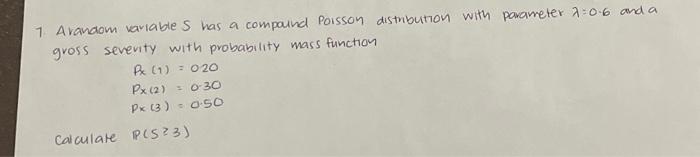 7. A random variable S has a compound Poisson distribution with parameter λ=0.6 and a
gross severity with probability mass function
Px (1) = 0.20
Px (2) = 0.30
Px (3) = 0.50
Calculate P(S≥3)